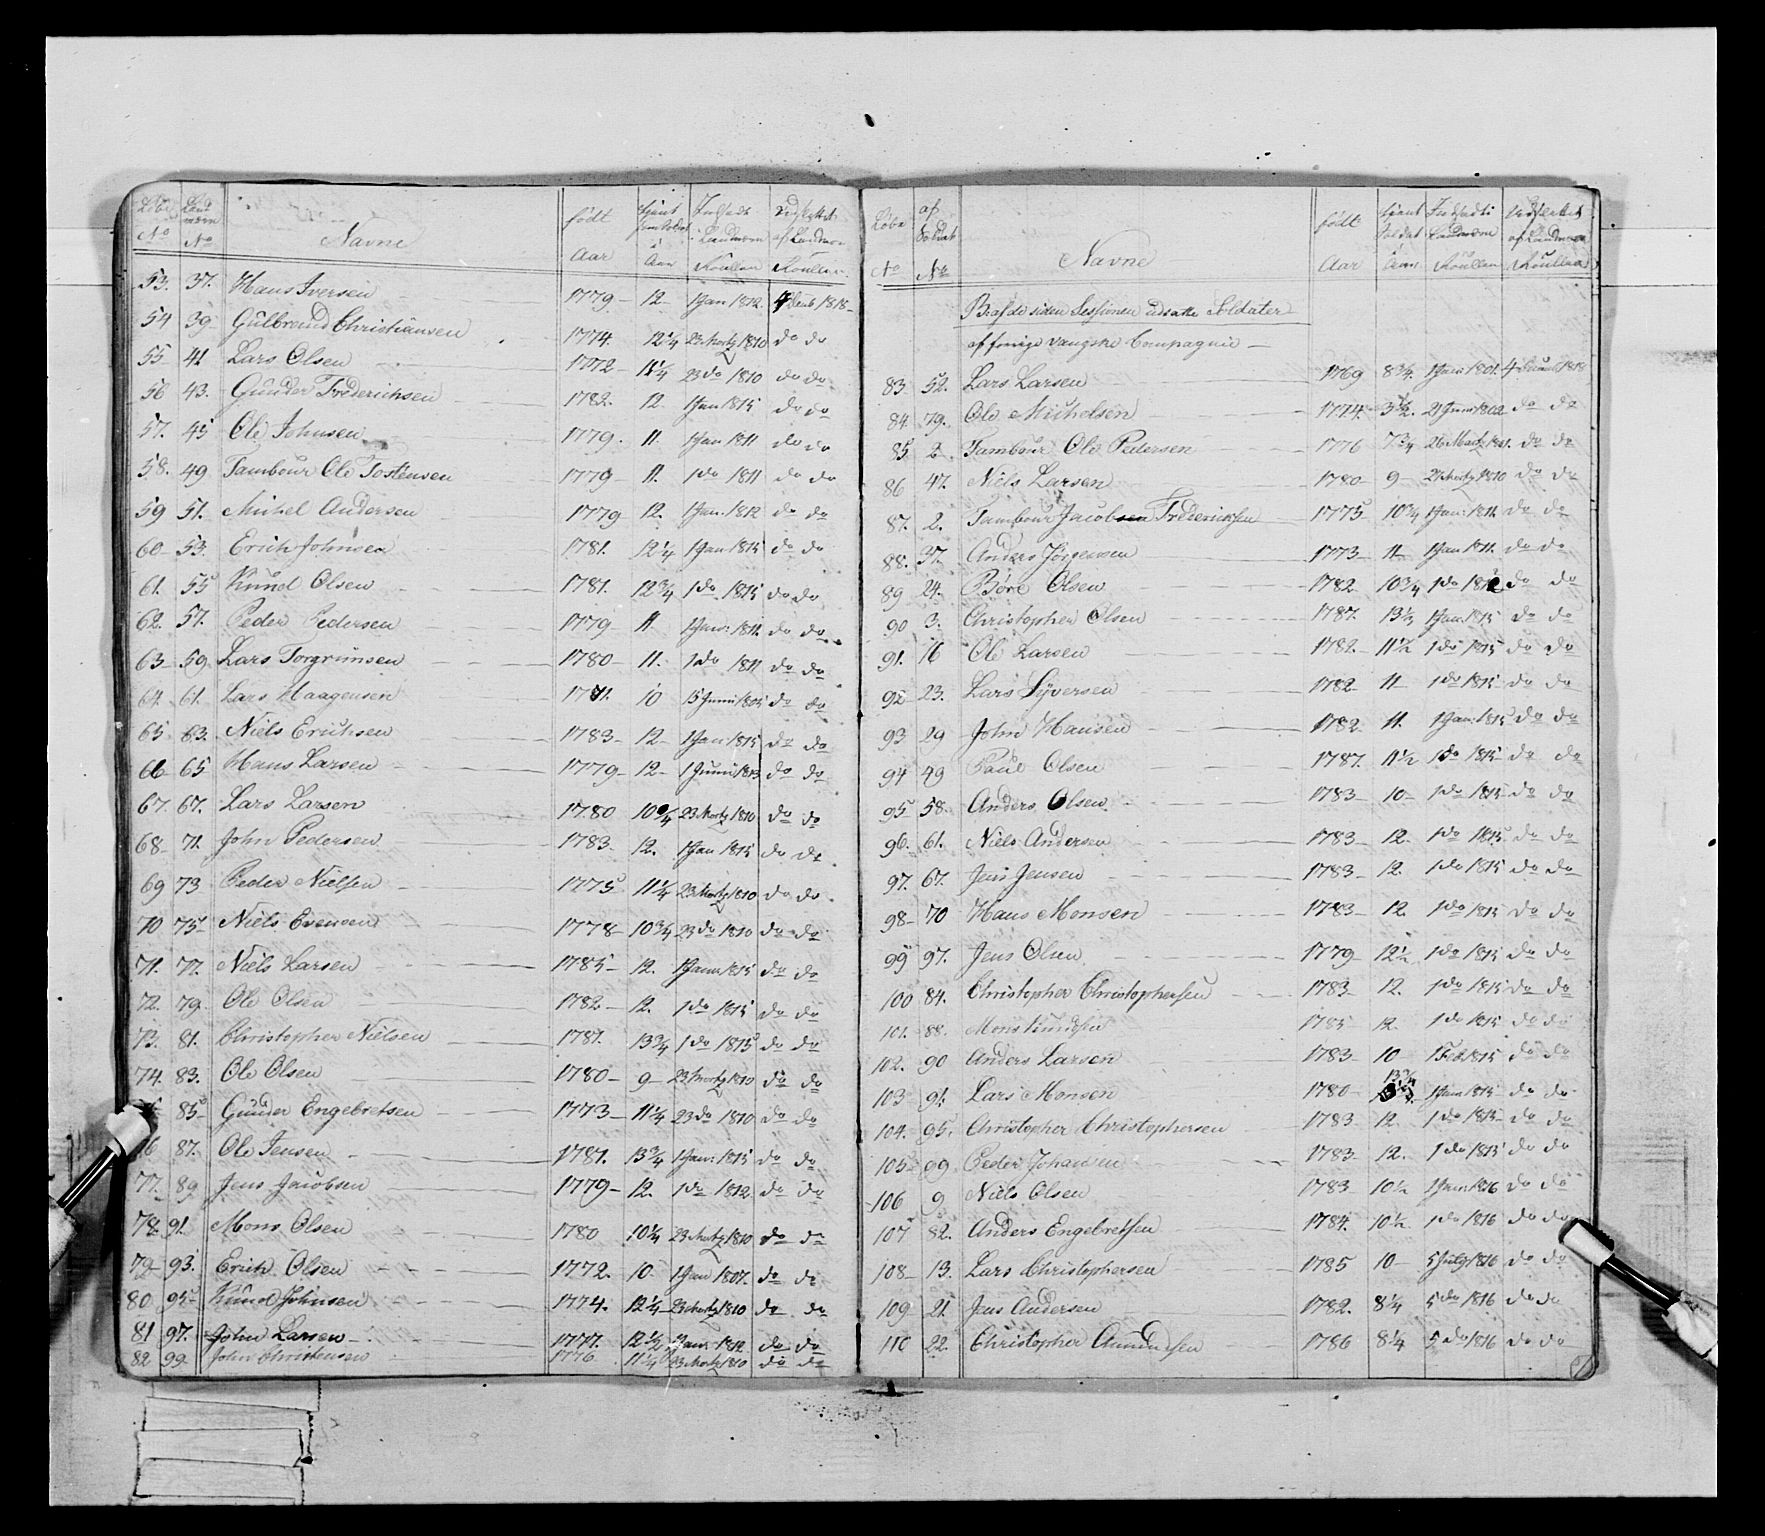 Løbe No | Landværn No | Navne | født Aar | tjent Aar | Indsadt i Landværn Roullen | Udslettet af Landværn Roullen
53. 37. Hans Iversen 1779 12 1 Jan 1812. 4 1818
54 39 Gulbrand Christiansen 1774. 12 1/4 23 Martz 1810 do do
55 41 Lars Olsen 1772 11 1/4 23 do 1810 do do
56 43. Gunder Frederichsen 1782. 12 1 Jan 1815 do do
57. 45 Ole Johnsen 1779. 11. 1 Jan 1811 do do
58. 49 Tambour Ole Tostensen 1779 11. 1 do 1811 do do
59 51. Michel Andersen 1779 12. 1 Jan. 1812 do do
60 53. Erich Johnsen 1781. 12 1/4 1 Jan 1815 do do
61. 55 Knud Olsen 1781. 12 3/4 1 do 1815 do do
62. 57. Peder Pedersen 1779 11 1 Janv: 1811. do do
63 59. Lars Torgrimsen 1780 11. 1 do 1811 do do
64. 61. Lars Haagensen 10 15 Junii 1805 do do
65 63. Niels Erichsen 1783 12 1 Jan 1815 do do
66 65 Hans Larsen 1779 12 1 Junii 1813 do do
67. 67. Lars Larsen 1780 10 3/4 23 Martz 1810 do do
68 71. John Pedersen 1783. 12. 1 Jan 1815 do do
69 73 Peder Nielsen 1775 11 1/4 23 Martz 1810 do do
70 75 Niels Evensen 1778 10 3/4 23 do 1810 do do
71. 77. Niels Larsen 1785 12. 1 Janv 1815 do do
72. 79. Ole Olsen 1782 12. 1 do 1815 do do
73. 81. Christopher Nielsen 1781. 13 3/4 1 do 1815 do do
74. 83. Ole Olsen 1780 9 23 Martz 1810 do do
85 Gunder Engebretsen 1773 11 1/4 23 do 1810 do do
76 87. Ole Jensen 1781. 13 3/4 1 Jan: 1815 do do
77. 89 Jens Jacobsen 1779 12. 1 do 1812. do do
78. 91. Mons Olsen 1780 10 1/4 23 Martz 1810 do do
79 93. Erich Olsen 1772. 10. 1 Jan 1807. do do
80 95 Knud Johnsen 1774. 12 1/4 23 Martz 1810 do do
81 97. John Larsen 1777. 12 1/2 Janv: 1812 do do
82 99 John Christensen 1776 11 1/4 23 Martz 1810 do do
Løbe No | af Soldat No | Navne | født Aar | tjent Soldat Aar | Indsadt i Landværn Roullen | Udslettet af Landværn Roullen
siden Sessionen udsatte Soldater
af Compagnie
83. 52. Lars Larsen 1769 8 3/4. 1 Janv 1801. 4 1818
84. 79. Ole Michelsen 1774. 3 1/2. 21 Junii 1802 do do
85 2 Tambour Ole Pedersen 1776 7 3/4 26 Martz 1801. do do
86 47. Niels Larsen 1780 9 24 Martz 1810 do do
87. 2. Tambour Jacobsen Frederichsen 1775 10 3/4 1 Jan: 1811. do do
88. 37. Anders Jørgensen 1773 11 1 Jan 1811. do do
89 24. Børe Olsen 1782 10 3/4 1 do do do
90 3. Christopher Olsen 1787. 13 1/2 1 Jan: 1815 do do
91. 16 Ole Larsen 1782. 11 1/2 1 do 1815 do do
92 23. Lars Syversen 1782 11 1 do 1815 do do
93 29 John Hansen 1782 11. 1 Jan: 1815 do do
94 49 Paul Olsen 1787. 11 1/2 1 do 1815 do do
95 58. Anders Olsen 1783 10 1 do 1815 do do
96. 61. Niels Andersen 1783 12. 1 do 1815 do do
97. 67. Jens Jensen 1783 12. 1 do 1815 do do
98 70 Hans Monsen 1783 12. 1 do 1815 do do
99 97. Jens Olsen 1779 12 1/2 1 do 1815 do do
100 84. Christopher Christophersen 1783 12. 1 do 1815 do do
101. 88. Mons Knudsen 1785 12. 1 do 1815 do do
102. 90 Anders Larsen 1783 10 1 Feb 1815 do do
103 91. Lars Monsen 1780 13 3/4 1 Janv 1815 do do
104. 95. Christopher Christophersen 1783 12. 1 do 1815 do do
105 99. Peder Johansen 1783 12. 1 do 1815 do do
106 9 Niels Olsen 1783 10 1/2 1 Janv 1816 do do
107 82. Anders Engebretsen 1784. 10 1/2. 1 do 1816 do do
108 13. Lars Christophersen 1785 10 5 July 1816 do do
109 21. Jens Andersen 1782. 8 1/4 5 do 1816 do do
110 22. Christopher Amundsen 1786 8 1/4 5 do 1816 do do